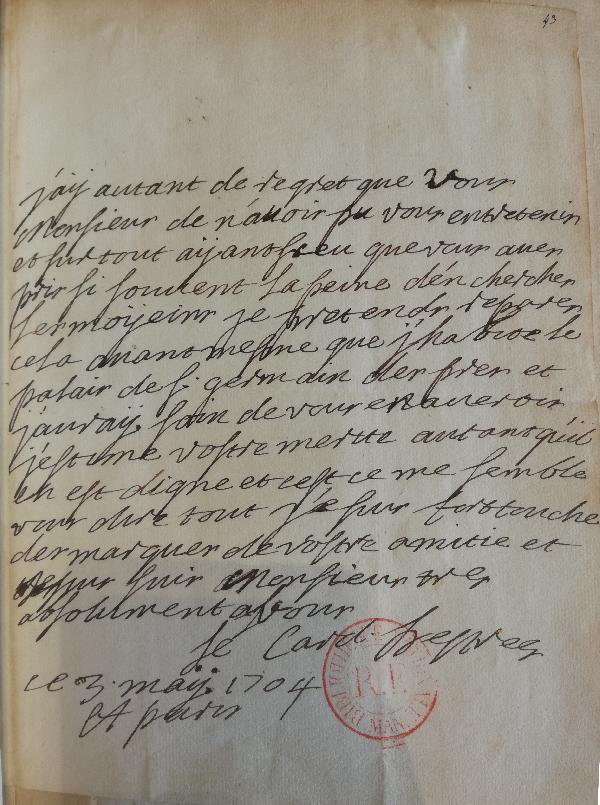 43
j'aij autant de regret que vous
Monsieur de n'auoir pu vous entretenir
et sur tout aijant sceu que vous aues
pris si souuent la peine d'en chercher
les moijeins je pretends reparer
cela auant mesme que j'habite le
palais de S. germain des pres et
j'auraij soin de vous en auertir
j'estime vostre merite autant qu'il
en est digne et c'est ce me semble
vous dire tout je suis fort touche
des marques de vostre amitie et
suis Monsieur tres
absolument a vous
le Card destrees
ce 3. maij. 1704
A paris
BIBLIOTHEQUE NATIONALE
R.F.
MAN.